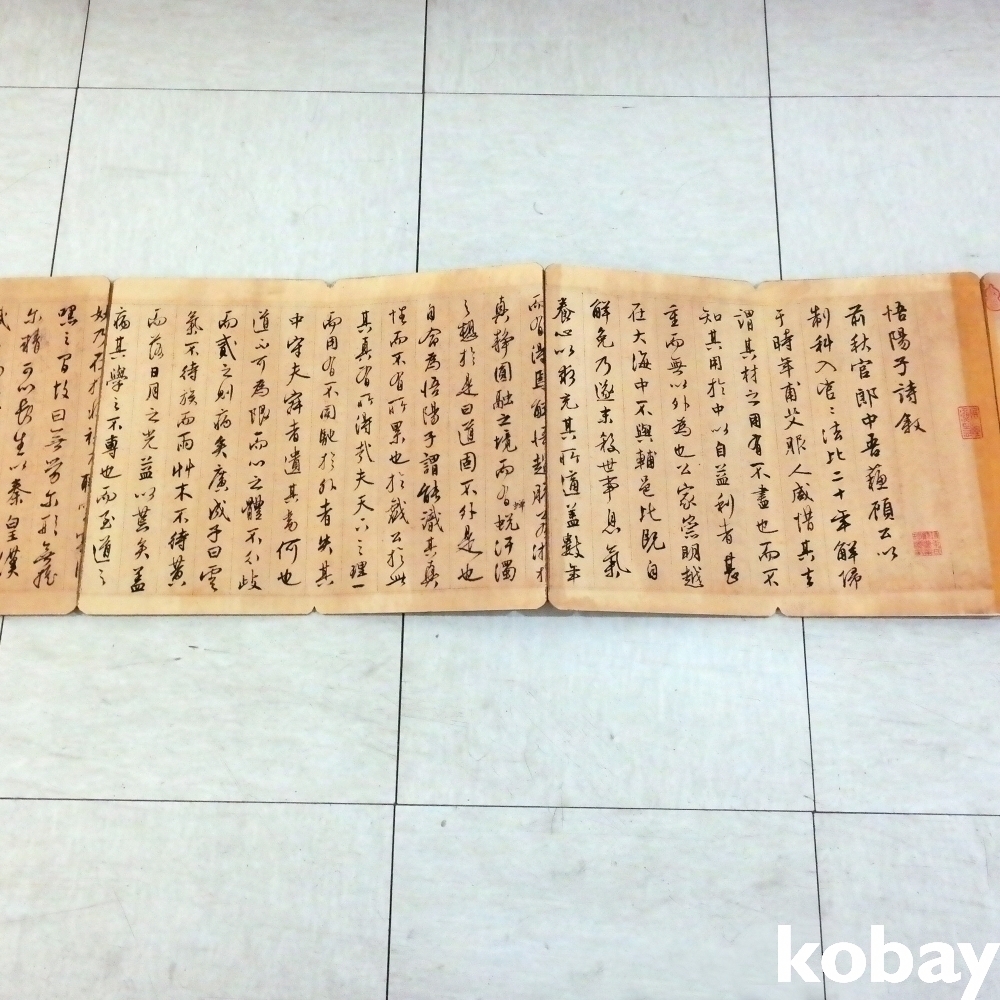 悟陽子詩敘
前秋官郎中吾蘇顧公以
制科入官二法比二十年解佩
于時年甫艾服人咸惜其去
謂其材之用有不盡也而不
知其用於中以自益利者甚
重而無以外為也公家崇明越
在大海中不與輔邑比既自
解免乃遂束救世事息氣
養心以求充其所道蓋數年
而有得焉解悟超脫
真靜圓融之境而有蛻汙濁
之趣於是曰道固不外是也
自命為悟陽子謂能識其真
性而不有所累也於戲公於此
其真有所得哉夫天下之理一
而用有不同馳於外者失其
中守夫寂者遺其為何也
道不可為限而心之體不分歧
而貳之則病矣廣成子曰雲
氣不待族而雨艸木不待黃
而落日月之光益以荒矣蓋
病其學之不專也而至道之
妙乃在於
默之間故曰無勞爾形無搖
爾精可以長生以秦皇漢
kobay